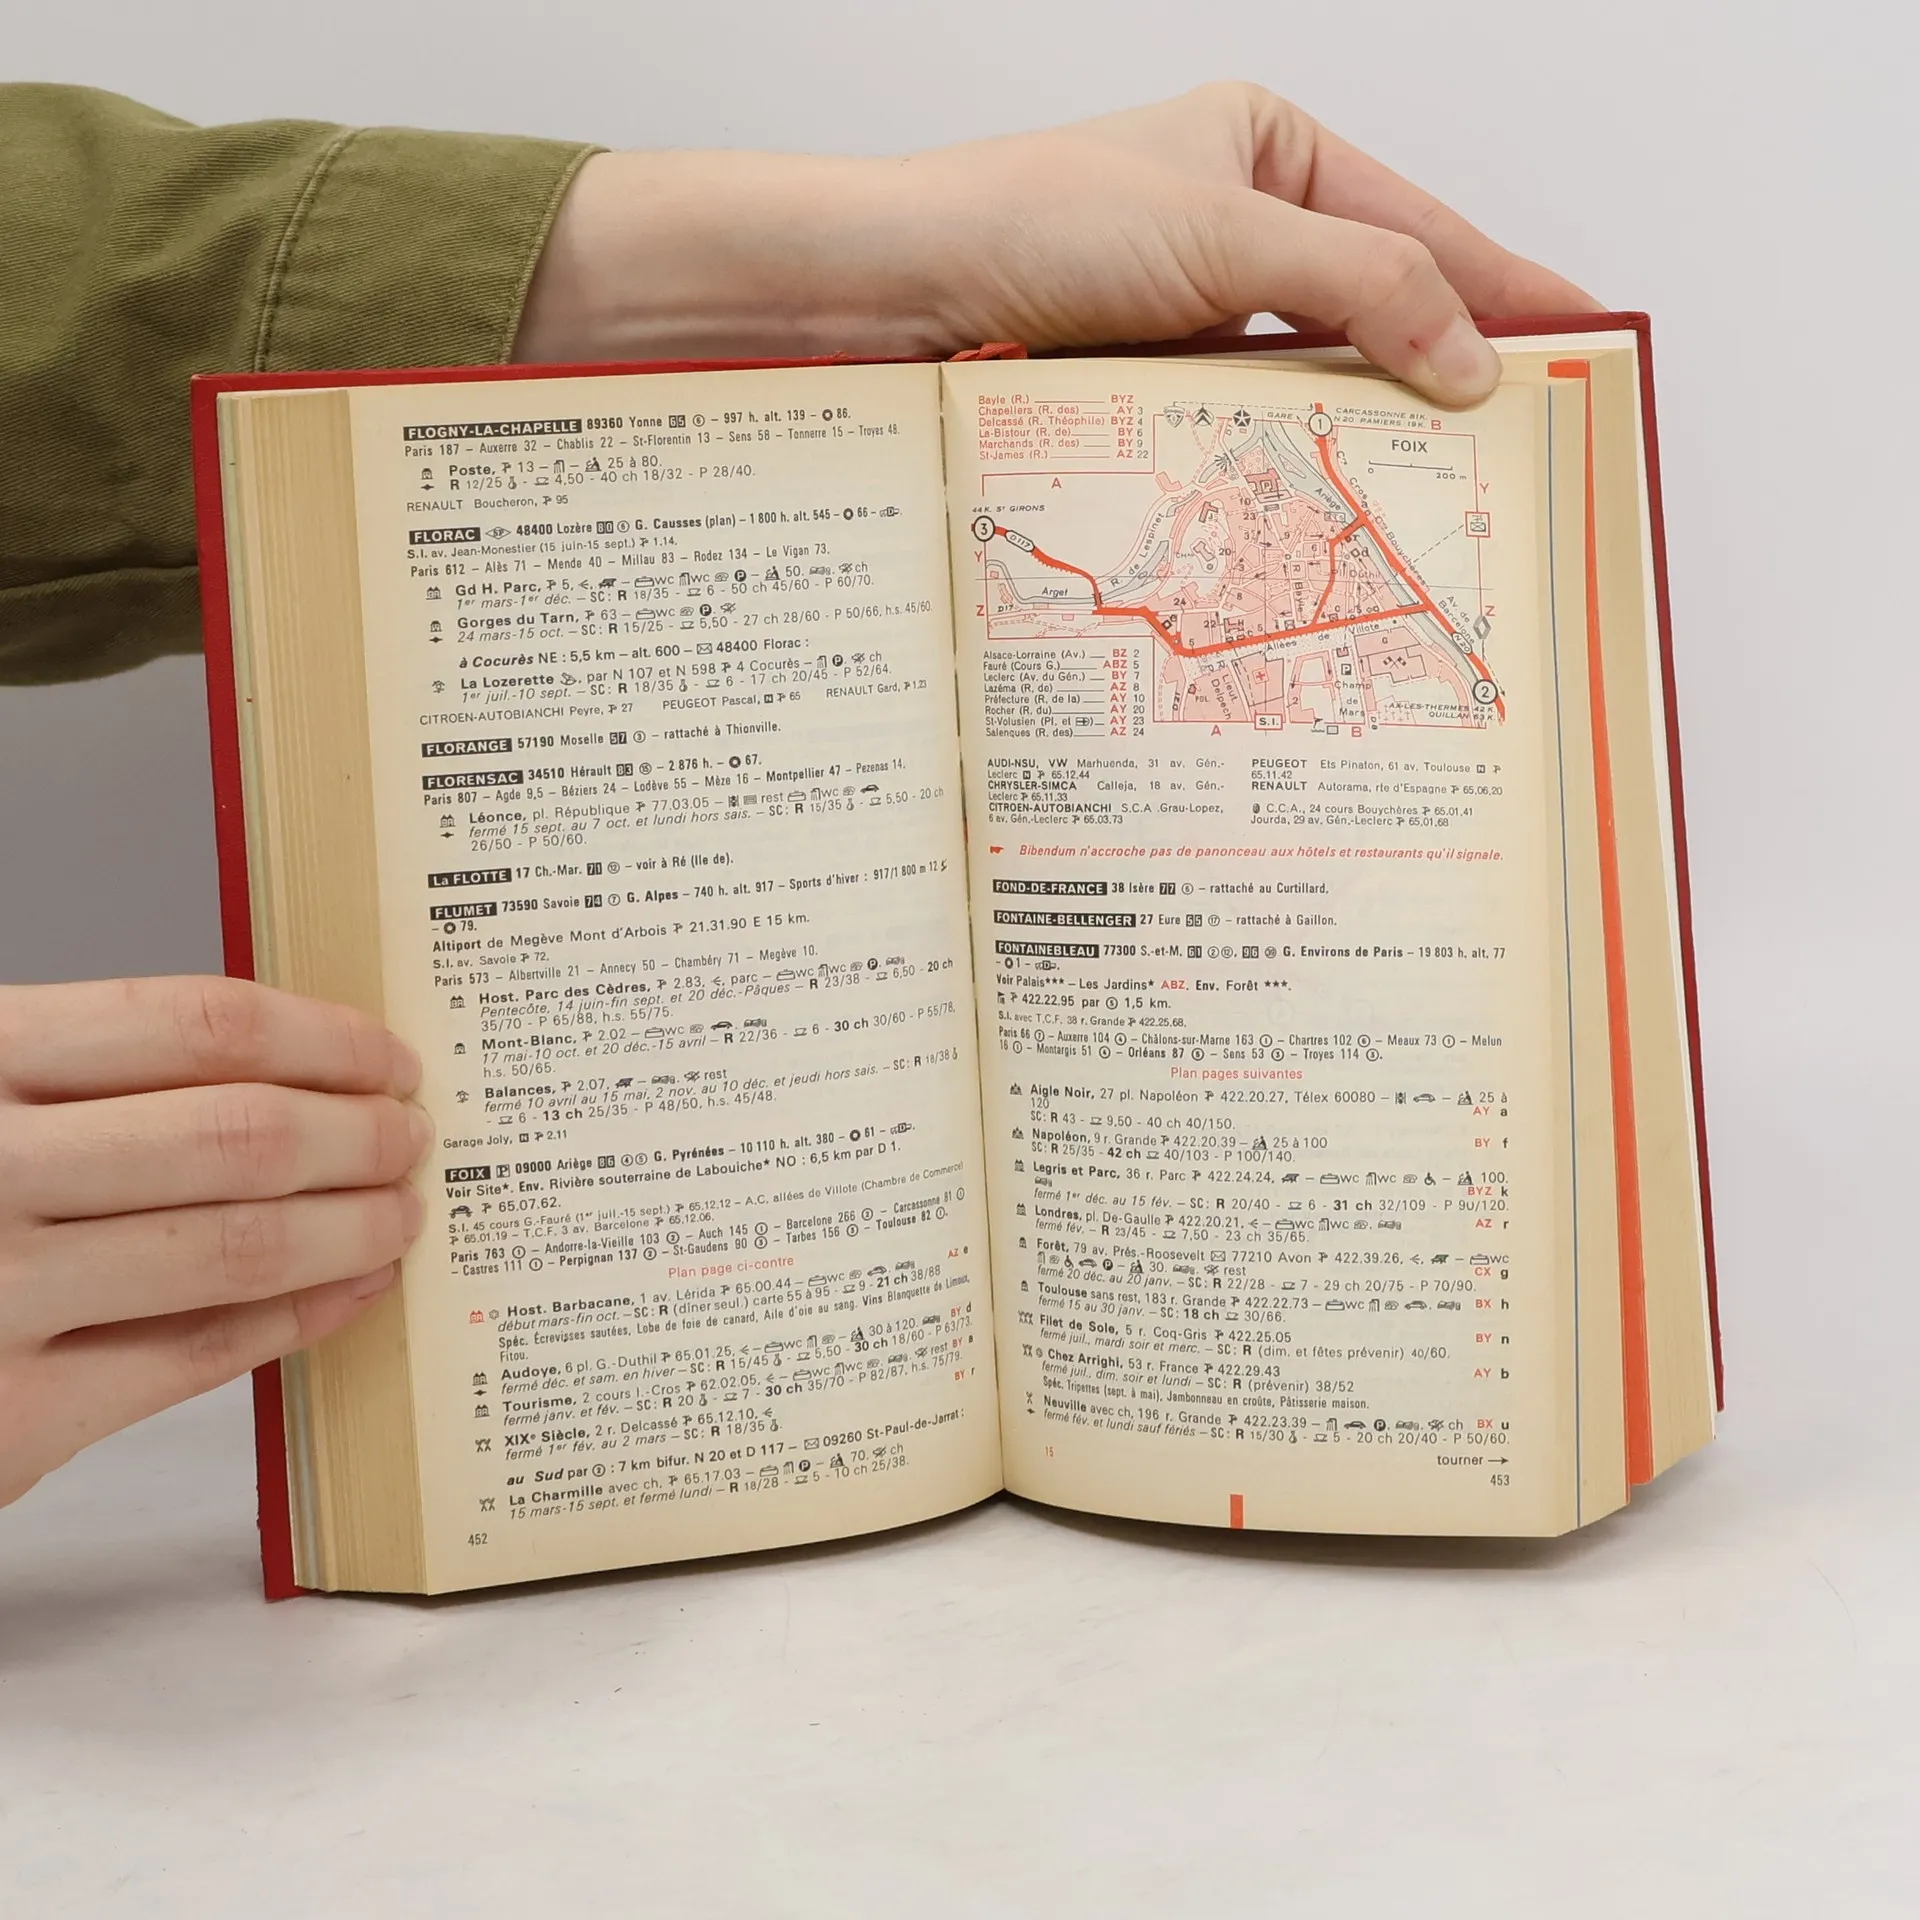 FLOGNY-LA-CHAPELLE 89360 Yonne 65 ⑥ – 997 h. alt. 139 – 86.
Paris 187 – Auxerre 32 – Chablis 22 – St-Florentin 13 – Sens 58 – Tonnerre 15 – Troyes 48.
Poste, 13 – – 25 à 80.
R 12/25 - 4,50 - 40 ch 18/32 - P 28/40.
RENAULT Boucheron, 95
FLORAC 48400 Lozère 80 ⑥ G. Causses (plan) – 1 800 h. alt. 545 – 66 –
S.I. av. Jean-Monestier (15 juin-15 sept.) 1.14.
Paris 612 – Alès 71 – Mende 40 – Millau 83 – Rodez 134 – Le Vigan 73.
Gd H. Parc, 5, – wc wc P – 50. ch
1er mars-1er déc. – SC: R 18/35 - 6 - 50 ch 45/60 - P 60/70.
Gorges du Tarn, 63 – wc P.
24 mars-15 oct. – SC: R 15/25 - 5,50 - 27 ch 28/60 - P 50/66, h.s. 45/60.
à Cocurès NE : 5,5 km – alt. 600 – 48400 Florac :
La Lozerette, par N 107 et N 598 4 Cocurès – P. ch
1er juil.-10 sept. – SC: R 18/35 - 6 - 17 ch 20/45 - P 52/64.
CITROEN-AUTOBIANCHI Peyre, 27 PEUGEOT Pascal, N 65 RENAULT Gard, 1.23
FLORANGE 57190 Moselle 57 ③ – rattaché à Thionville.
FLORENSAC 34510 Hérault 83 ⑮ – 2 876 h. – 67.
Paris 807 – Agde 9,5 – Béziers 24 – Lodève 55 – Mèze 16 – Montpellier 47 – Pezenas 14.
Léonce, pl. République 77.03.05 – rest wc
fermé 15 sept. au 7 oct. et lundi hors sais. – SC: R 15/35 - 5,50 - 20 ch
26/50 - P 50/60.
La FLOTTE 17 Ch.-Mar. 71 ⑫ – voir à Ré (Ile de).
FLUMET 73590 Savoie 74 ⑦ G. Alpes – 740 h. alt. 917 – Sports d'hiver : 917/1 800 m 12
– 79.
Altiport de Megève Mont d'Arbois 21.31.90 E 15 km.
S.I. av. Savoie 72.
Paris 573 – Albertville 21 – Annecy 50 – Chambéry 71 – Megève 10.
Host. Parc des Cèdres, 2.83, parc – wc wc P.
Pentecôte, 14 juin-fin sept. et 20 déc.-Pâques – R 23/38 - 6,50 - 20 ch
35/70 - P 65/88, h.s. 55/75.
Mont-Blanc, 2.02 – wc
17 mai-10 oct. et 20 déc.-15 avril – R 22/36 - 6 - 30 ch 30/60 - P 55/78,
h.s. 50/65.
Balances, 2.07, – rest
fermé 10 avril au 15 mai, 2 nov. au 10 déc. et jeudi hors sais. – SC: R 18/38
- 6 - 13 ch 25/35 - P 48/50, h.s. 45/48.
Garage Joly, N 2.11
FOIX P 09000 Ariège 86 ④⑤ G. Pyrénées – 10 110 h. alt. 380 – 61 –
Voir Site*. Env. Rivière souterraine de Labouiche* NO : 6,5 km par D 1.
65.07.62.
S.I. 45 cours G.-Fauré (1er juil.-15 sept.) 65.12.12 – A.C. allées de Villote (Chambre de Commerce)
65.01.19 – T.C.F. 3 av. Barcelone 65.12.06.
Paris 763 ① – Andorre-la-Vieille 103 ② – Auch 145 ① – Barcelone 266 ② – Carcassonne 81 ①
– Castres 111 ① – Perpignan 137 ② – St-Gaudens 90 ③ – Tarbes 156 ③ – Toulouse 82 ①.
Plan page ci-contre
Host. Barbacane, 1 av. Lérida 65.00.44 – wc AZ e
début mars-fin oct. – SC: R (dîner seul.) carte 55 à 95 - 9 - 21 ch 38/88
Spéc. Écrevisses sautées, Lobe de foie de canard, Aile d'oie au sang. Vins Blanquette de Limoux,
Fitou.
Audoye, 6 pl. G.-Duthil 65.01.25, – wc – 30 à 120. BY d
fermé déc. et sam. en hiver – SC: R 15/45 - 5,50 - 30 ch 18/60 - P 63/73.
Tourisme, 2 cours I.-Cros 62.02.05, – wc wc rest BY a
fermé janv. et fév. – SC: R 20 - 7 - 30 ch 35/70 - P 82/87, h.s. 75/79.
XIXe Siècle, 2 r. Delcassé 65.12.10, BY r
fermé 1er fév. au 2 mars – SC: R 18/35
au Sud par ② : 7 km bifur. N 20 et D 117 – 09260 St-Paul-de-Jarrat :
La Charmille avec ch, 65.17.03 – P – 70. ch
15 mars-15 sept. et fermé lundi – R 18/28 - 5 - 10 ch 25/38.
452
Bayle (R.) BYZ
Chapeliers (R. des) AY 3
Delcassé (R. Théophile) BYZ 4
La-Bistour (R. de) BY 6
Marchands (R. des) BY 9
St-James (R.) AZ 22
GARE
CARCASSONNE 81K.
N20 PAMIERS 19K. B
FOIX
0 200 m
A
Y
44 K. St GIRONS
D117
R. de Lespinet
Ariège
Crs Bouychères
R. Bayle
Pl. Duthil
Arget
D17
Z
Av. de Barcelone
N20
Allées de Villote
R. Lieut. Delpech
POL.
Champ
de
Mars
S.I.
A
B
AX-LES-THERMES 42 K.
QUILLAN 63 K.
Alsace-Lorraine (Av.) BZ 2
Fauré (Cours G.) ABZ 5
Leclerc (Av. du Gén.) BY 7
Lazéma (R. de) AZ 8
Préfecture (R. de la) AY 10
Rocher (R. du) AY 20
St-Volusien (Pl. et) AY 23
Salenques (R. des) AZ 24
AUDI-NSU, VW Marhuenda, 31 av. Gén.-
Leclerc N 65.12.44
CHRYSLER-SIMCA Calleja, 18 av. Gén.-
Leclerc 65.11.33
CITROEN-AUTOBIANCHI S.C.A .Grau-Lopez,
6 av. Gén.-Leclerc 65.03.73
PEUGEOT Ets Pinaton, 61 av. Toulouse N
65.11.42
RENAULT Autorama, rte d'Espagne 65.06.20
C.C.A., 24 cours Bouychères 65.01.41
Jourda, 29 av. Gén.-Leclerc 65.01.68
Bibendum n'accroche pas de panonceau aux hôtels et restaurants qu'il signale.
FOND-DE-FRANCE 38 Isère 77 ⑥ – rattaché au Curtillard.
FONTAINE-BELLENGER 27 Eure 55 ⑰ – rattaché à Gaillon.
FONTAINEBLEAU 77300 S.-et-M. 61 ②⑫, 96 G. Environs de Paris – 19 803 h. alt. 77
– 1 –
Voir Palais*** – Les Jardins* ABZ. Env. Forêt ***.
422.22.95 par ⑤ 1,5 km.
S.I. avec T.C.F. 38 r. Grande 422.25.68.
Paris 66 ⑦ – Auxerre 104 ④ – Châlons-sur-Marne 163 ① – Chartres 102 ⑥ – Meaux 73 ① – Melun
16 ① – Montargis 51 ④ – Orléans 87 ⑤ – Sens 53 ③ – Troyes 114 ③.
Plan pages suivantes
Aigle Noir, 27 pl. Napoléon 422.20.27, Télex 60080 – – 25 à
120 AY a
SC: R 43 - 9,50 - 40 ch 40/150.
Napoléon, 9 r. Grande 422.20.39 – 25 à 100 BY f
SC: R 25/35 - 42 ch 40/103 - P 100/140.
Legris et Parc, 36 r. Parc 422.24.24, – wc wc – 100.
BYZ k
fermé 1er déc. au 15 fév. – SC: R 20/40 - 6 - 31 ch 32/109 - P 90/120.
Londres, pl. De-Gaulle 422.20.21, – wc wc AZ r
fermé fév. – R 23/45 - 7,50 - 23 ch 35/65.
Forêt, 79 av. Prés.-Roosevelt 77210 Avon 422.39.26, – wc
P – 30. rest CX g
fermé 20 déc. au 20 janv. – SC: R 22/28 - 7 - 29 ch 20/75 - P 70/90.
Toulouse sans rest, 183 r. Grande 422.22.73 – wc BX h
fermé 15 au 30 janv. – SC: 18 ch 30/66.
Filet de Sole, 5 r. Coq-Gris 422.25.05 BY n
fermé juil., mardi soir et merc. – SC: R (dim. et fêtes prévenir) 40/60.
Chez Arrighi, 53 r. France 422.29.43 AY b
fermé juil., dim. soir et lundi – SC: R (prévenir) 38/52
Spéc. Tripettes (sept. à mai), Jambonneau en croûte, Pâtisserie maison.
Neuville avec ch, 196 r. Grande 422.23.39 – P. ch BX u
fermé fév. et lundi sauf fériés – SC: R 15/30 - 5 - 20 ch 20/40 - P 50/60.
15
tourner →
453